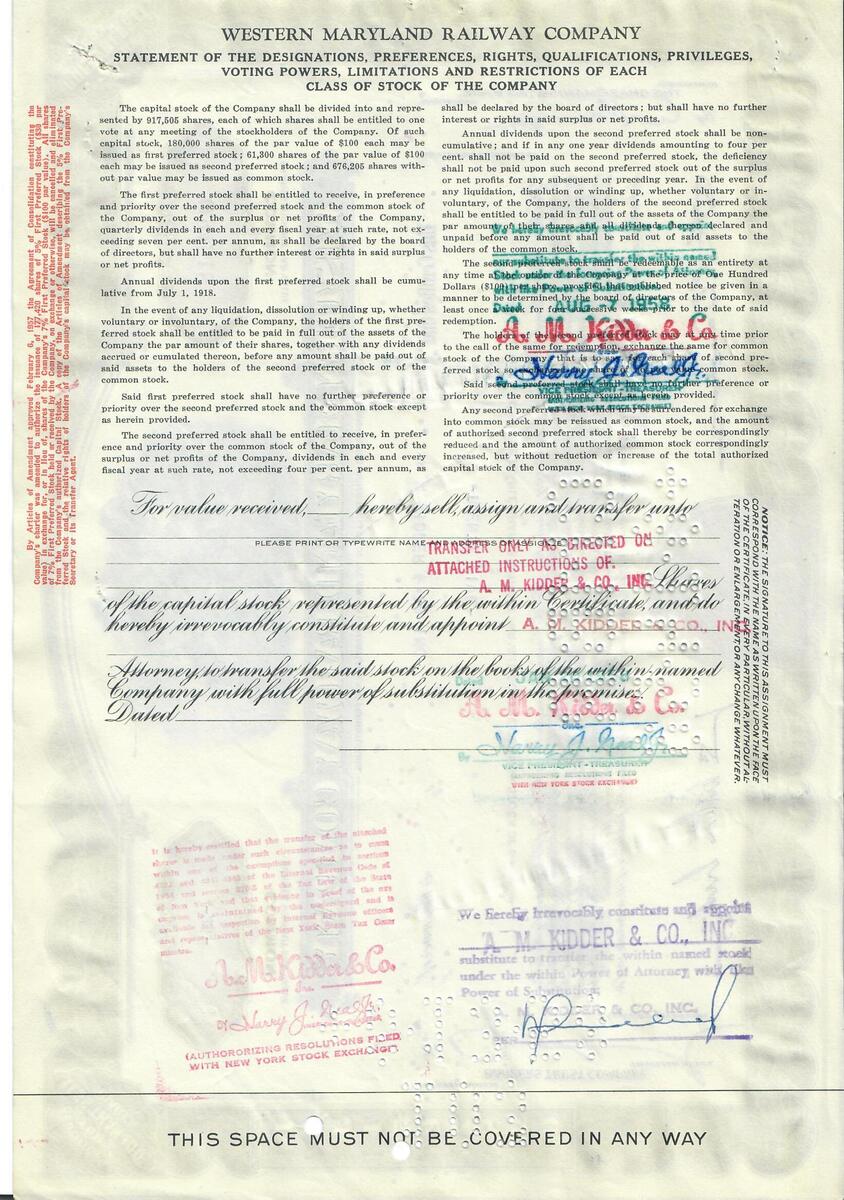 WESTERN MARYLAND RAILWAY COMPANY
STATEMENT OF THE DESIGNATIONS, PREFERENCES, RIGHTS, QUALIFICATIONS, PRIVILEGES,
VOTING POWERS, LIMITATIONS AND RESTRICTIONS OF EACH
CLASS OF STOCK OF THE COMPANY
The capital stock of the Company shall be divided into and repre-
sented by 917,505 shares, each of which shall be entitled to one
vote at any meeting of the stockholders of the Company. Of such
capital stock, 180,000 shares of the par value of $100 each may be
issued as first preferred stock; 61,300 shares of the par value of $100
each may be issued as second preferred stock; and 676,205 shares with-
out par value may be issued as common stock.
The first preferred stock shall be entitled to receive, in preference
and priority over the second preferred stock and the common stock
of the Company, out of the surplus or net profits of the Company,
quarterly dividends in each and every fiscal year at such rate, not ex-
ceeding seven per cent. per annum, as shall be declared by the board
of directors, but shall have no further interest or rights in said surplus
or net profits.
Annual dividends upon the first preferred stock shall be cumu-
lative from July 1, 1918.
In the event of any liquidation, dissolution or winding up, whether
voluntary or involuntary, of the Company, the holders of the first pre-
ferred stock shall be entitled to be paid in full out of the assets of the
Company the par amount of their shares, together with any dividends
accrued or cumulated thereon, before any amount shall be paid out of
said assets to the holders of the second preferred stock or of the
common stock.
Said first preferred stock shall have no further preference or
priority over the second preferred stock and the common stock except
as herein provided.
The second preferred stock shall be entitled to receive, in prefer-
ence and priority over the common stock of the Company, out of the
surplus or net profits of the Company, dividends in each and every
fiscal year at such rate, not exceeding four per cent. per annum, as
shall be declared by the board of directors; but shall have no further
interest or rights in said surplus or net profits.
Annual dividends upon the second preferred stock shall be non-
cumulative; and if in any one year dividends amounting to four per
cent. shall not be paid on the second preferred stock, the deficiency
shall not be paid upon such second preferred stock out of the surplus
or net profits for any subsequent or preceding year. In the event of
any liquidation, dissolution or winding up, whether voluntary or in-
voluntary, of the Company, the holders of the second preferred stock
shall be entitled to be paid in full out of the assets of the Company the
par amount of their shares and all dividends thereon declared and
unpaid before any amount shall be paid out of said assets to the
holders of the common stock.
The second preferred stock shall be redeemable as an entirety at
any time at the option of the Company at the price of One Hundred
Dollars ($100) per share, provided that published notice be given in a
manner to be determined by the board of directors of the Company, at
least once a week for four successive weeks prior to the date of said
redemption.
The holders of the second preferred stock may at any time prior
to the call of the same for redemption, exchange the same for common
stock of the Company, that is to say, for each share of second pre-
ferred stock so one share of common stock.
Said second preferred stock shall have no further preference or
priority over the common stock except as herein provided.
Any second preferred stock which may be surrendered for exchange
into common stock may be reissued as common stock, and the amount
of authorized second preferred stock shall thereby be correspondingly
reduced and the amount of authorized common stock correspondingly
increased, but without reduction or increase of the total authorized
capital stock of the Company.
AUG 7 1958
A. M. Kidder & Co.
Harry J. Neal Jr.
VICE PRESIDENT - TREASURER
By Articles of Amendment approved February 6, 1957 the Agreement of Consolidation constituting the
Company's charter was amended to authorize the issuance of 177,420 shares of 5% First Preferred Stock ($30 par
value) in exchange for, or in lieu of, shares of the Company's 7% First Preferred Stock ($100 par value). All shares
of 7% First Preferred Stock held or received by the Company, on exchange or otherwise, will be cancelled and eliminated
from the Company's authorized Capital Stock. A copy of the Articles of Amendment describing the 5% First Pre-
ferred Stock and the relative rights of holders of the Company's capital stock may be obtained from the Company's
Secretary or its Transfer Agent.
For value received, hereby sell, assign and transfer unto
PLEASE PRINT OR TYPEWRITE NAME AND ADDRESS OF ASSIGNEE
TRANSFER ONLY AS DIRECTED ON
ATTACHED INSTRUCTIONS OF.
A. M. KIDDER & CO., INC.
Shares
of the capital stock represented by the within Certificate, and do
hereby irrevocably constitute and appoint A. M. KIDDER & CO., INC.
Attorney, to transfer the said stock on the books of the within-named
Company with full power of substitution in the premise.
Dated
A. M. Kidder & Co.
Inc.
By Harry J. Neal Jr.
VICE PRESIDENT - TREASURER
AUTHORIZING RESOLUTIONS FILED
WITH NEW YORK STOCK EXCHANGE
NOTICE: THE SIGNATURE TO THIS ASSIGNMENT MUST
CORRESPOND WITH THE NAME AS WRITTEN UPON THE FACE
OF THE CERTIFICATE, IN EVERY PARTICULAR, WITHOUT AL-
TERATION OR ENLARGEMENT, OR ANY CHANGE WHATEVER.
It is hereby certified that the transfer of the attached
shares is made under such circumstances as to come
within one of the exemptions specified in sections
A. M. Kidder & Co.
Inc.
By Harry J. Neal Jr.
(AUTHORORIZING RESOLUTIONS FILED
WITH NEW YORK STOCK EXCHANGE)
We hereby irrevocably constitute and appoint
A. M. KIDDER & CO., INC
substitute to transfer the within named stock
under the within Power of Attorney, with like
Power of Substitution.
KIDDER & CO., INC.
PER
THIS SPACE MUST NOT BE COVERED IN ANY WAY